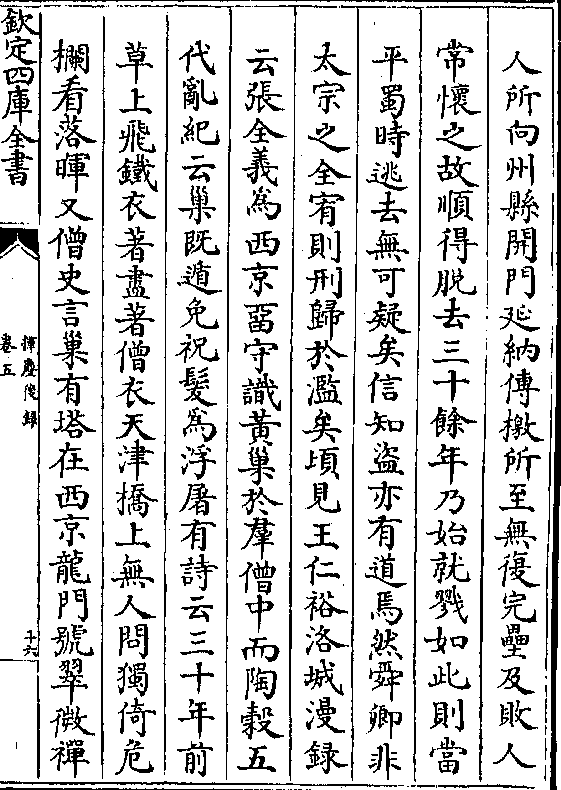 人所向州縣開門延納傳檄所至無復完壘及敗人
常懷之故順得脫去三十餘年乃始就戮如此則當
平蜀時逃去無可疑矣信知盜亦有道焉然舜卿非
太宗之全宥則刑歸於濫矣頃見王仁裕洛城漫録
云張全義爲西京留守識黄巢於羣僧中而陶穀五
代亂紀云巢既遁免祝髮爲浮屠有詩云三十年前
草上飛鐵衣著盡著僧衣天津橋上無人問獨倚危
欄看落暉又僧史言巢有塔在西京龍門號翠微禪
欽定四庫全書
揮麈後録
卷五
十六